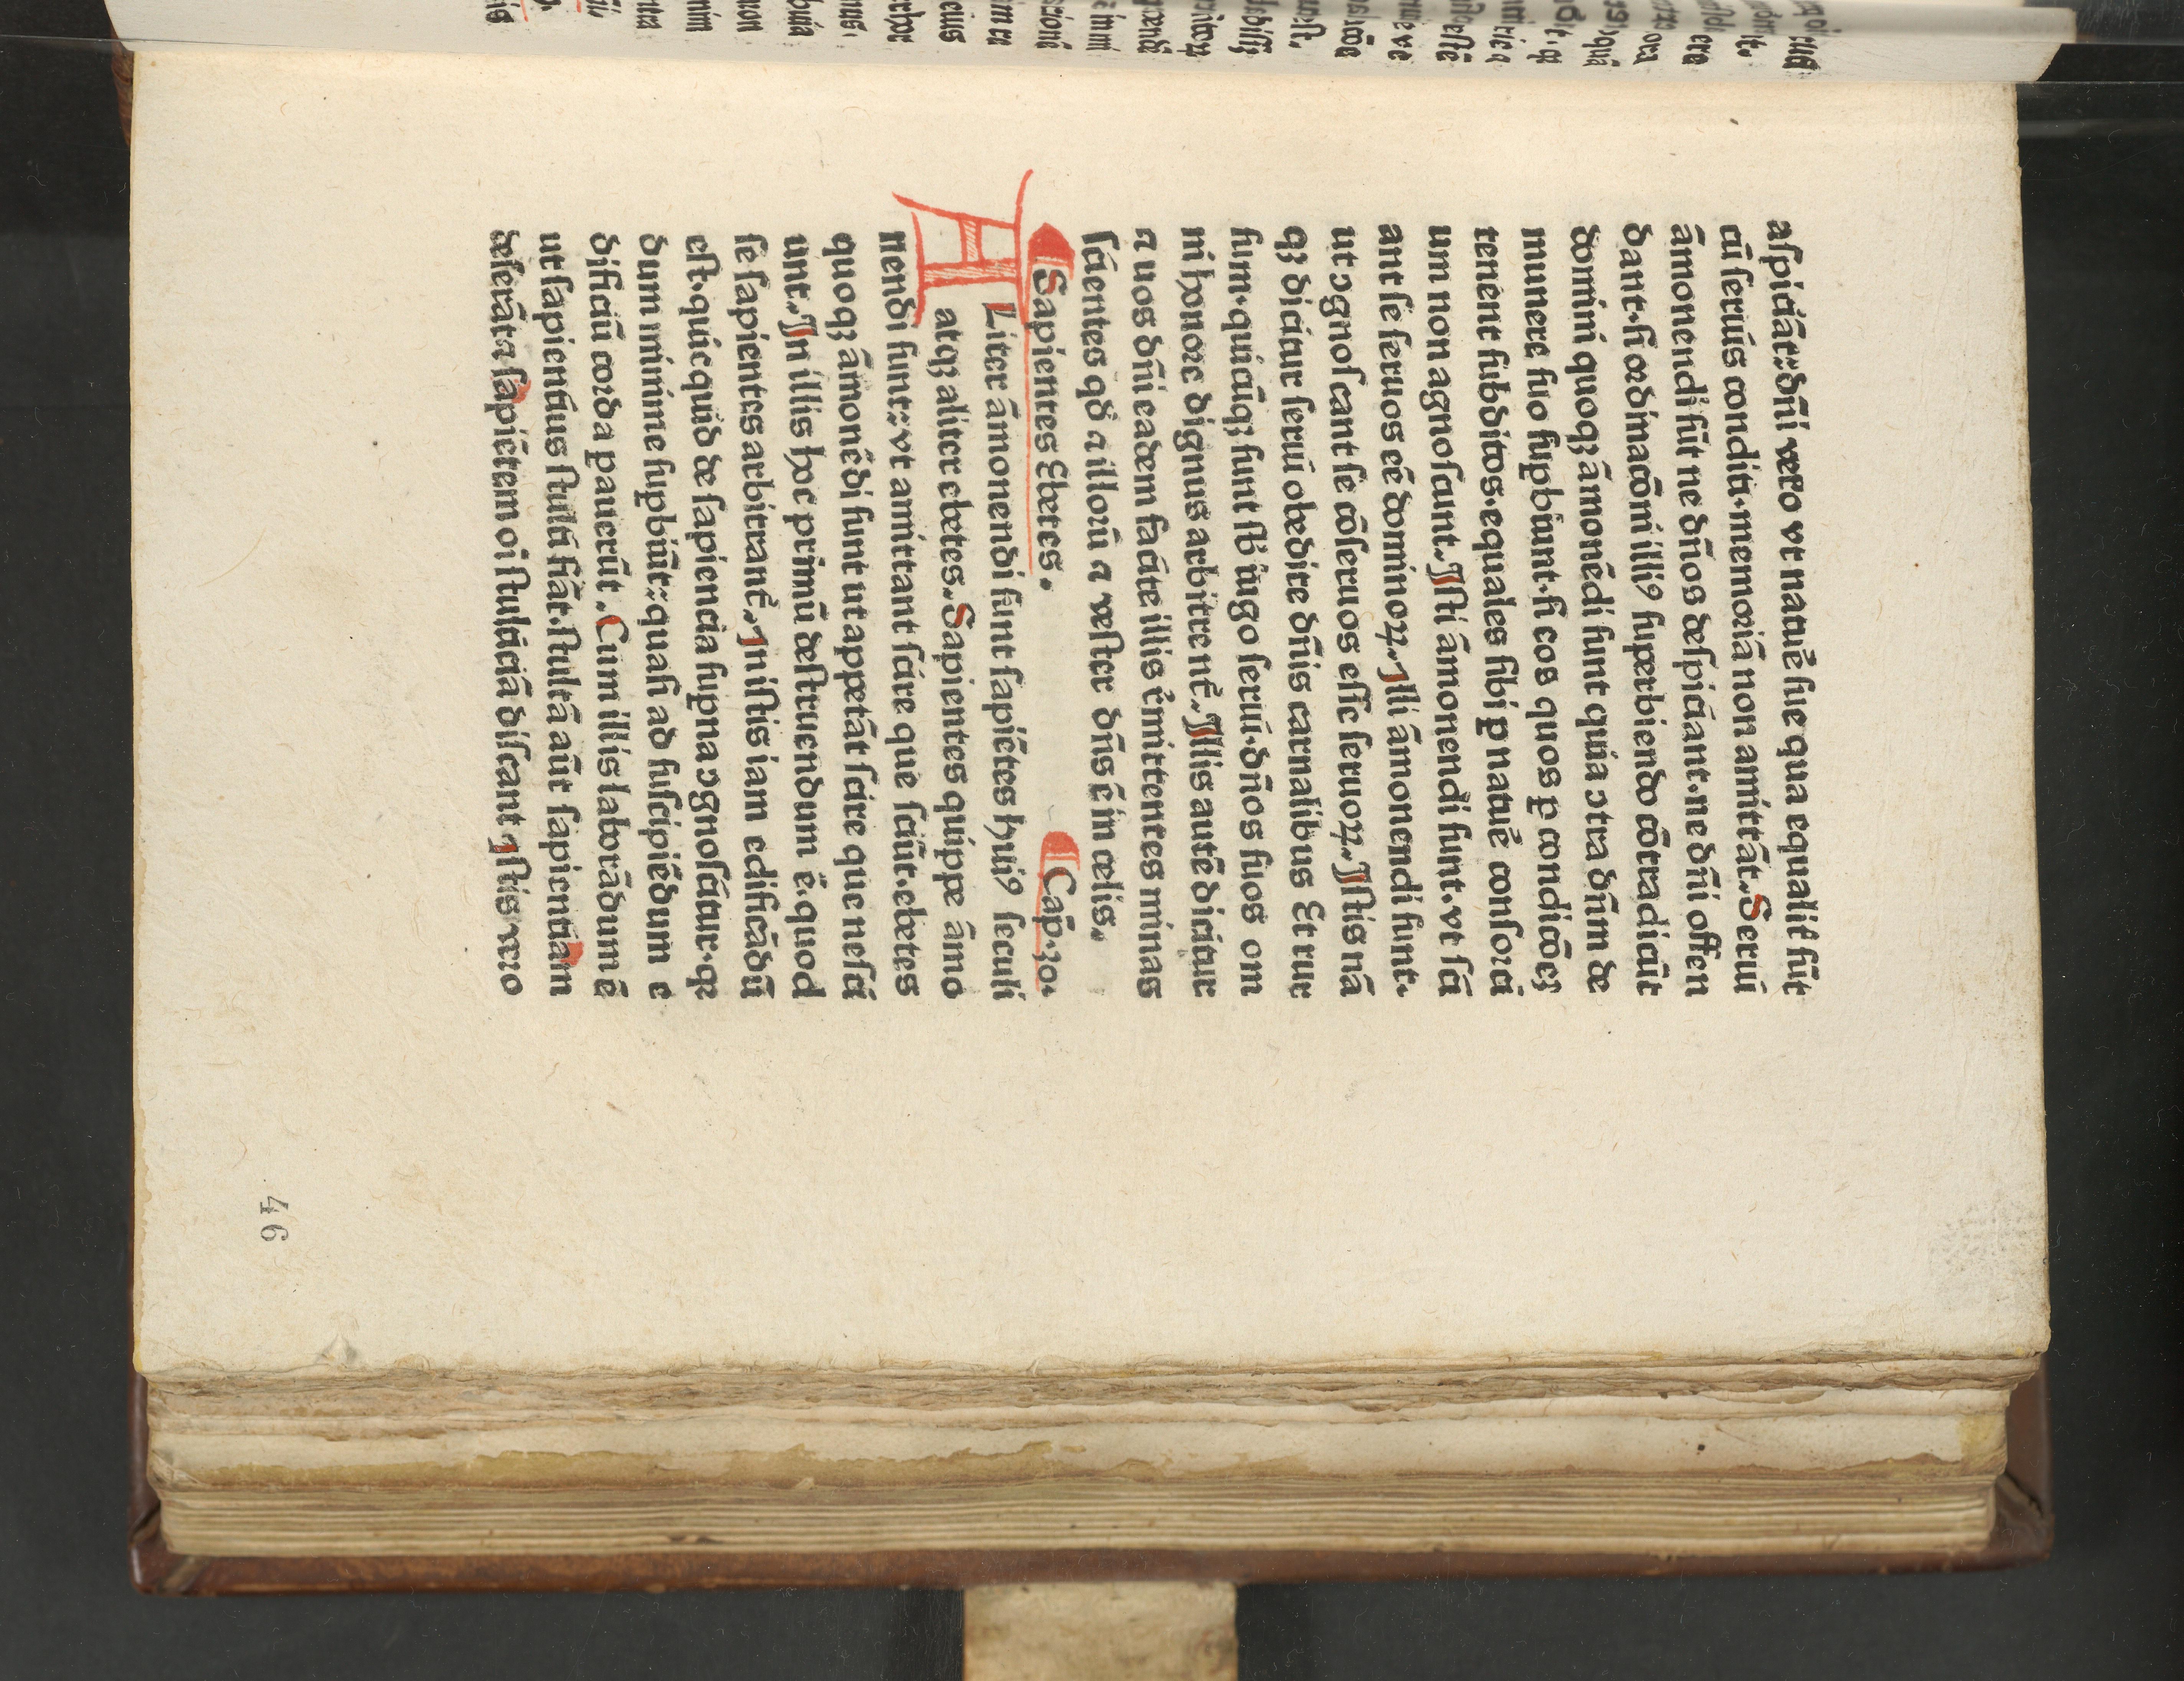 aspiciāt: dñi vero vt natuē sue qua equalit̉ sūt
cū seruis conditi. memoriā non amittāt. Serui
āmonendi sūt ne dños despiciant. ne dñi offen
dant. si ordinacōni illiꝰ superbiendo cōtradicūt
domini quoqꝫ āmonēdi sunt quia ↄtra dñm de
munere suo supbiunt. si eos quos ꝑ condicōeꝫ
tenent subditos. equales sibi ꝑ natuē consorci
um non agnoscunt. Isti āmonendi sunt. vt sci
ant se seruos eē dominoꝝ. Illi āmonendi sunt.
ut ↄgnoscant se cōseruos esse seruoꝝ. Istis nā
qꝫ dicitur serui obedite dñis carnalibus Et rur
sum. quicūqꝫ sunt sb̉ iugo serui. dños suos om
ni honore dignus arbitrent̉. Illis autē dicitur
ꝛ uos dñi eadem facite illis r̉mittentes minas
scientes qd̉ ꝛ illorū ꝛ vester dñs ē in celis.
Sapientes Ebetes. Cap̄. 30.
ALiter āmonendi sunt sapiētes huiꝰ seculi
atqꝫ aliter ebetes. Sapientes quippe āmo
nendi sunt: vt amittant scire que sciūt. ebetes
quoqꝫ āmonēdi sunt ut appetāt scire que nesci
unt. In illis hoc primū destruendum ē. quod
se sapientes arbitrant̉. In istis iam edificādū
est. quicquid de sapiencia supna ↄgnoscitur. qꝛ
dum minime supbiūt: quasi ad suscipiēdum e
dificiū corda pauerūt. Cum illis laborādum ē
ut sapientius stulti fiāt. stultā aūt sapientiam
deserāt ꝛ sapiētem di stulticiā discant. Istis vero
46